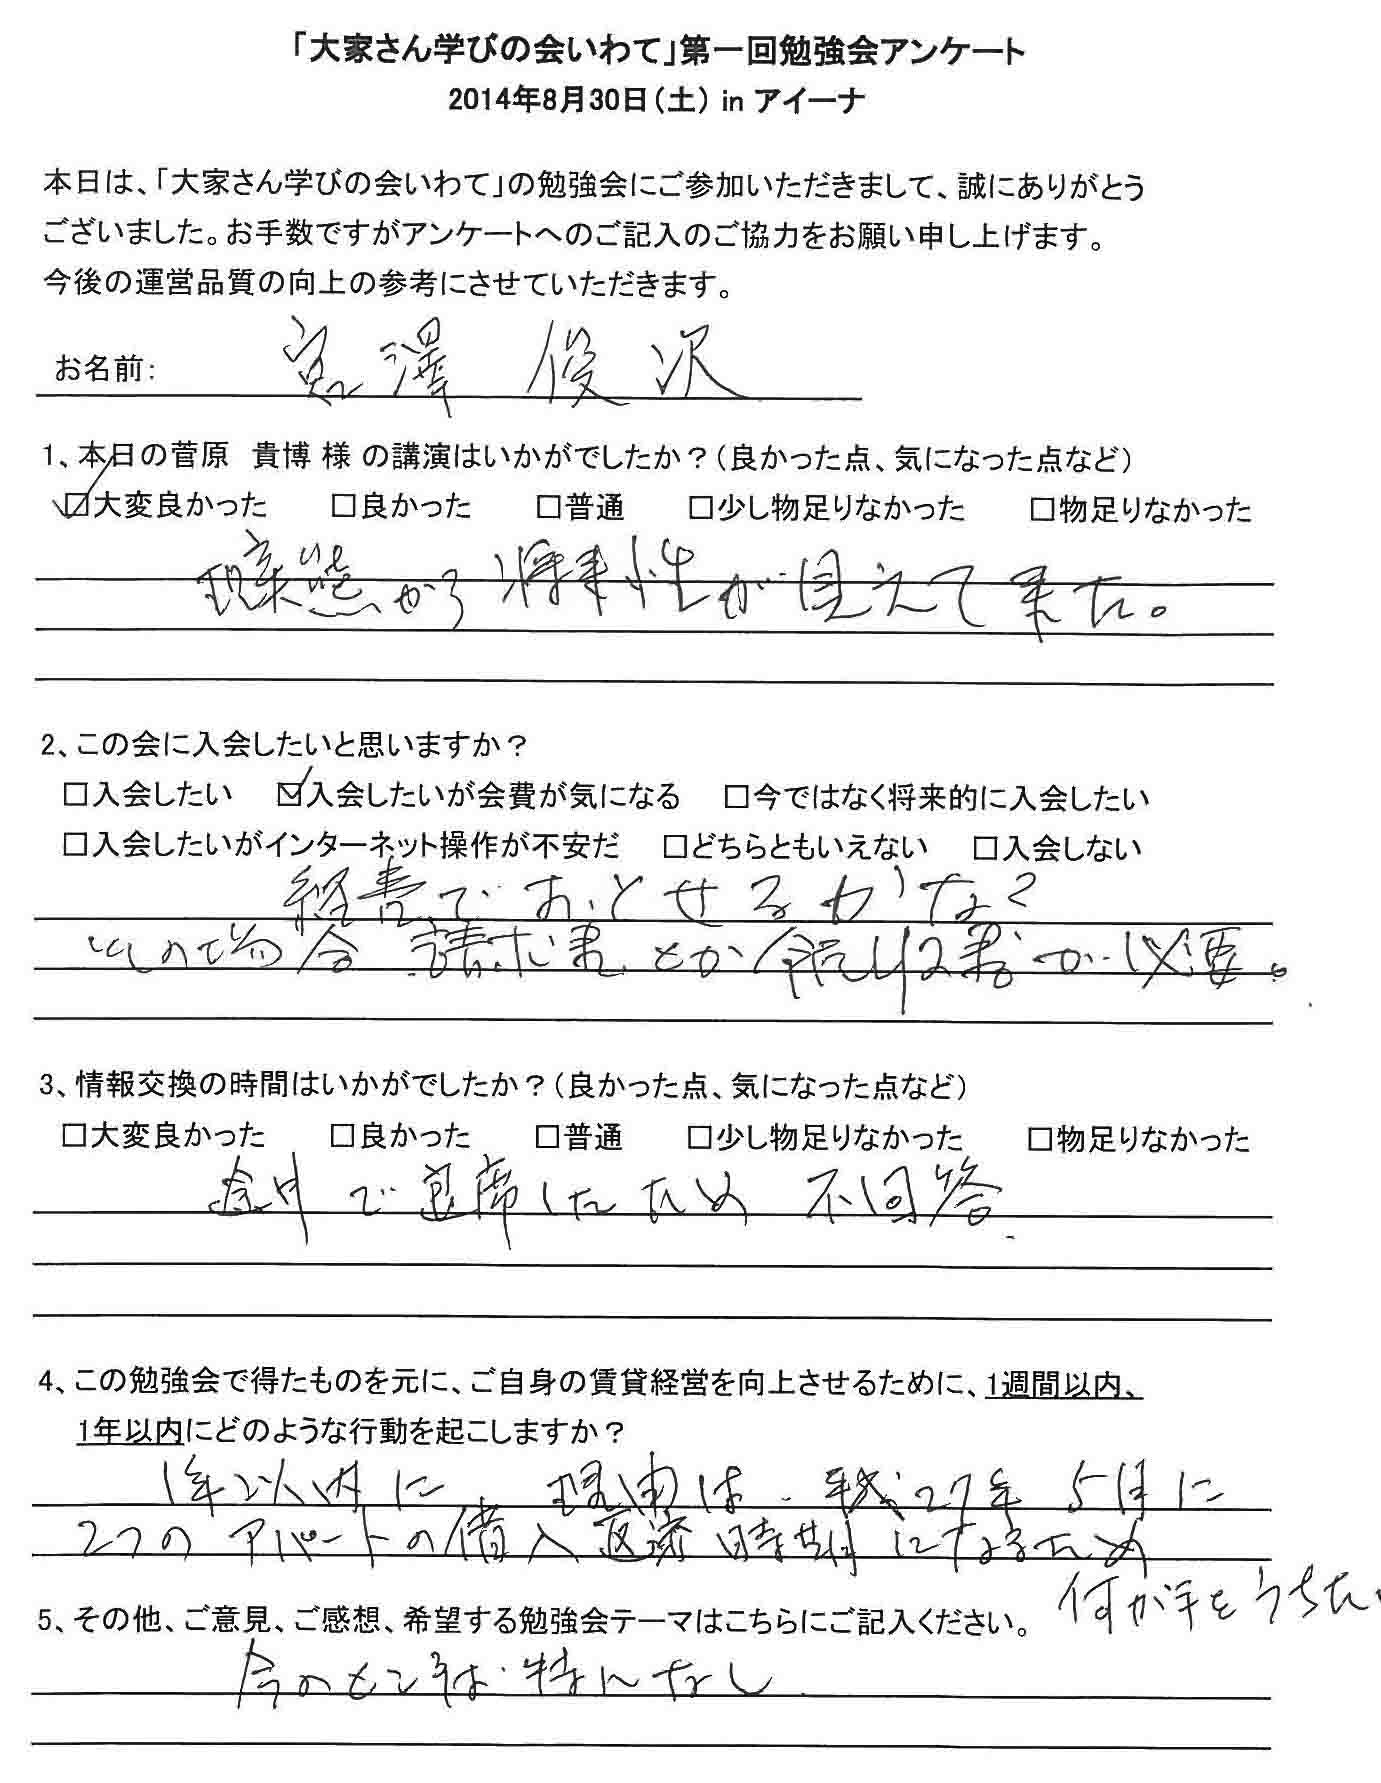 「大家さん学びの会いわて」第一回勉強会アンケート
2014年8月30日(土) in アイーナ
本日は、「大家さん学びの会いわて」の勉強会にご参加いただきまして、誠にありがとう
ございました。お手数ですがアンケートへのご記入のご協力をお願い申し上げます。
今後の運営品質の向上の参考にさせていただきます。
お名前: 宮澤 俊次
1、本日の菅原 貴博 様 の講演はいかがでしたか?(良かった点、気になった点など)
☑大変良かった □良かった □普通 □少し物足りなかった □物足りなかった
から 将来性が見えて来た。
2、この会に入会したいと思いますか?
□入会したい ☑入会したいが会費が気になる □今ではなく将来的に入会したい
□入会したいがインターネット操作が不安だ □どちらともいえない □入会しない
経費でおとせるかな?
その場合 請求書とか領収書が必要。
3、情報交換の時間はいかがでしたか?(良かった点、気になった点など)
□大変良かった □良かった □普通 □少し物足りなかった □物足りなかった
途中で退席したため 不回答
4、この勉強会で得たものを元に、ご自身の賃貸経営を向上させるために、1週間以内、
1年以内にどのような行動を起こしますか?
1年以内に 理由は、平成27年5月に
2つのアパートの借入返済時期になるため
何か手をうちたい
5、その他、ご意見、ご感想、希望する勉強会テーマはこちらにご記入ください。
今のところは特になし